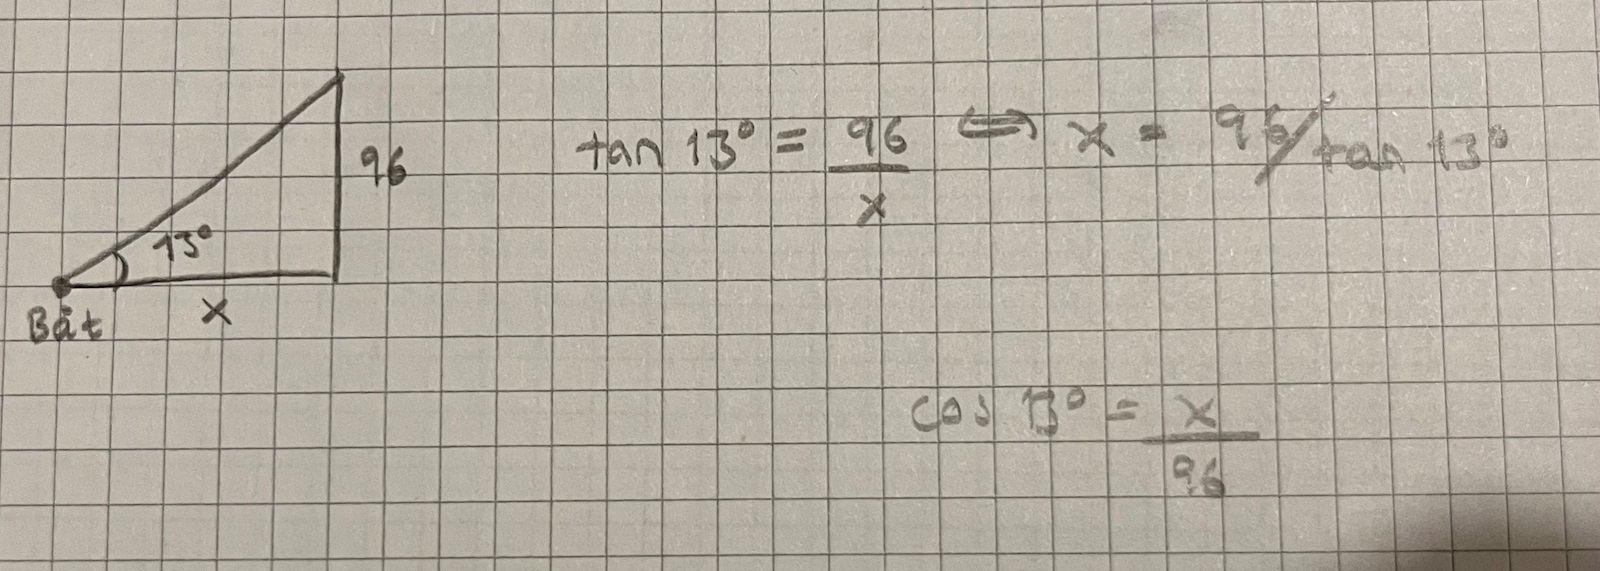 96
13°
x
Båt
tan 13° = 96/x ⟺ x = 96/tan 13°
cos 13° = x/96